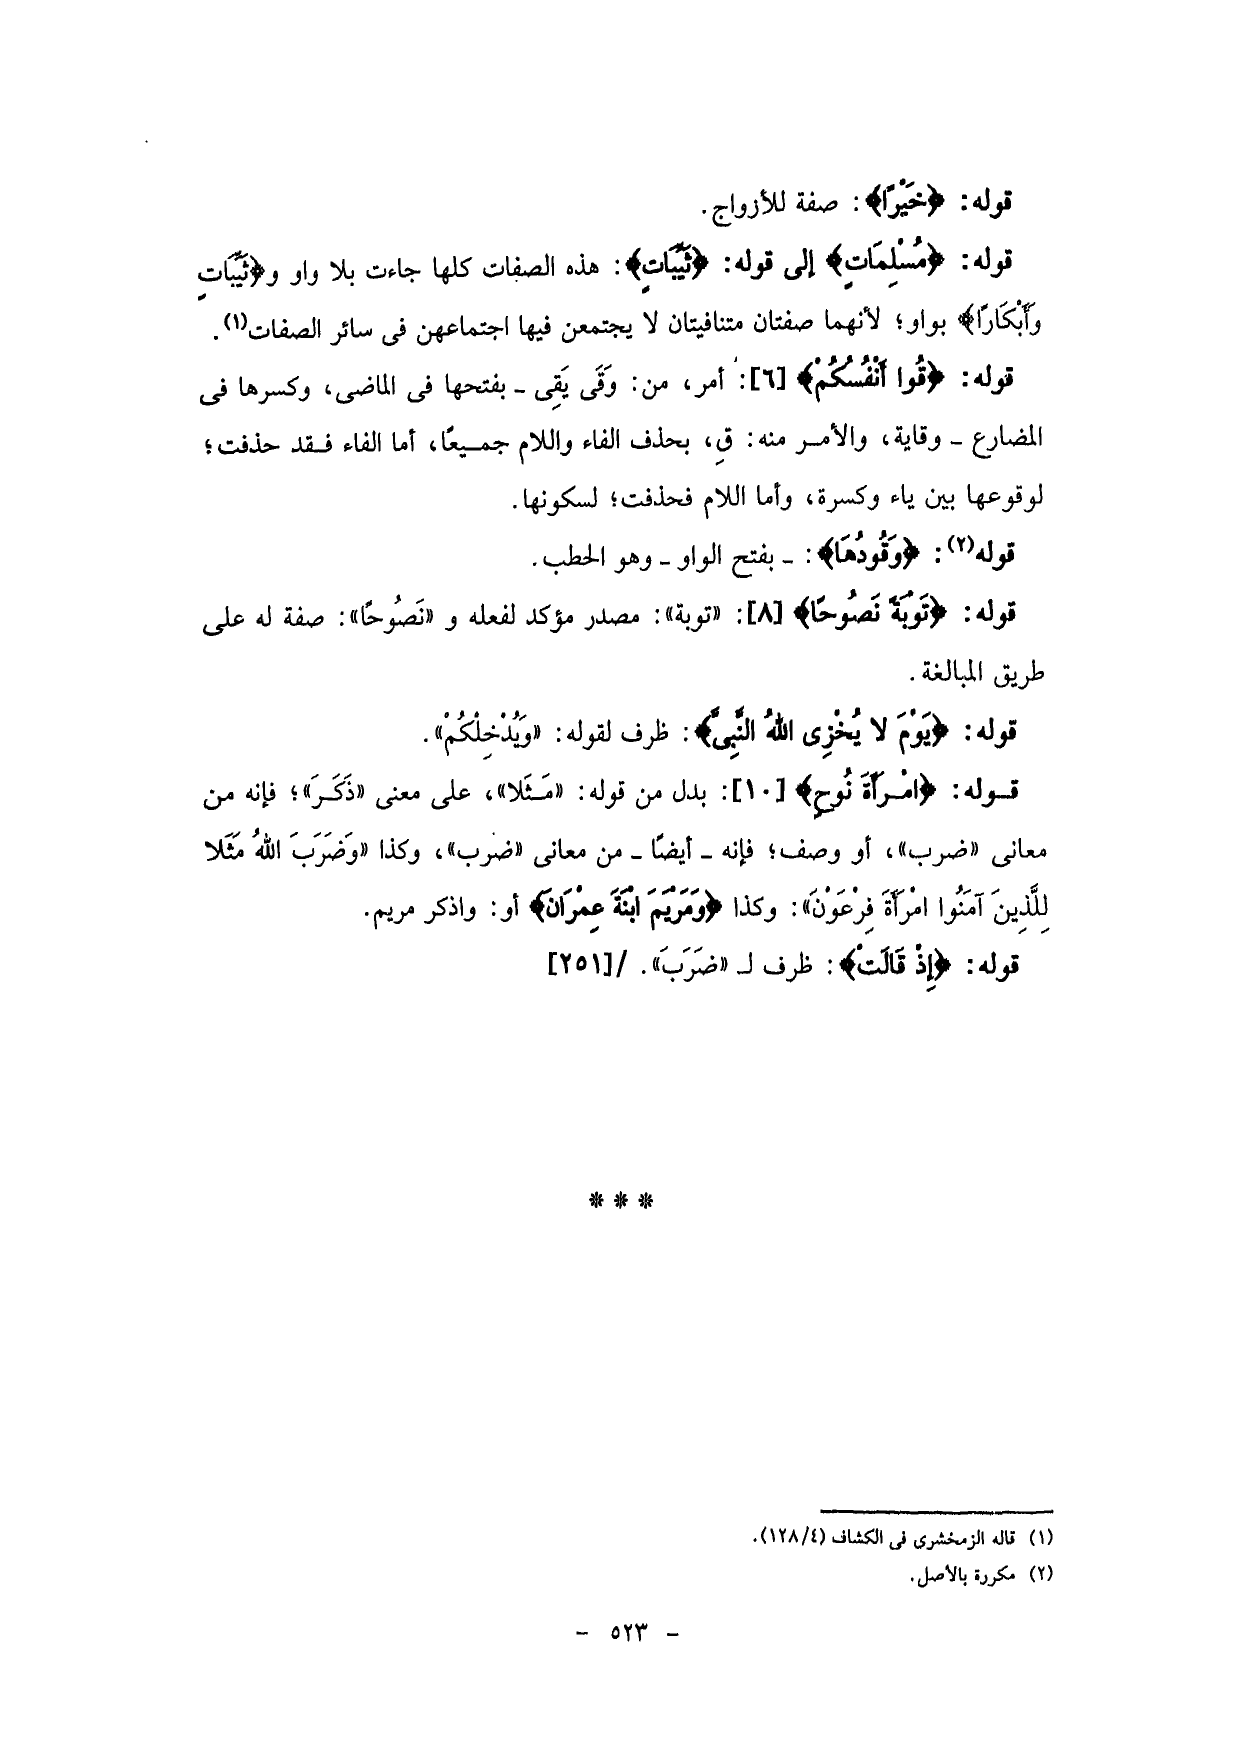 قوله: ﴿خَيْرًا﴾: صفة للأزواج.
قوله: ﴿مُسْلِمَاتٍ﴾ إلى قوله: ﴿ثَيِّبَاتٍ﴾: هذه الصفات كلها جاءت بلا واو و﴿ثَيِّبَاتٍ
وَأَبْكَارًا﴾ بواو؛ لأنهما صفتان متنافيتان لا يجتمعن فيها اجتماعهن فى سائر الصفات(١).
قوله: ﴿قُوا أَنْفُسَكُمْ﴾ [٦]: أمر، من: وَقَى يَقِى ـ بفتحها فى الماضى، وكسرها فى
المضارع ـ وقاية، والأمر منه: قِ، بحذف الفاء واللام جميعًا، أما الفاء فقد حذفت؛
لوقوعها بين ياء وكسرة، وأما اللام فحذفت؛ لسكونها.
قوله(٢): ﴿وَقُودُهَا﴾: ـ بفتح الواو ـ وهو الحطب.
قوله: ﴿تَوْبَةً نَصُوحًا﴾ [٨]: «توبة»: مصدر مؤكد لفعله و «نَصُوحًا»: صفة له على
طريق المبالغة.
قوله: ﴿يَوْمَ لا يُخْزِى اللهُ النَّبِىَّ﴾: ظرف لقوله: «وَيُدْخِلْكُمْ».
قوله: ﴿امْرَأَةَ نُوحٍ﴾ [١٠]: بدل من قوله: «مَثَلا»، على معنى «ذَكَرَ»؛ فإنه من
معانى «ضرب»، أو وصف؛ فإنه ـ أيضًا ـ من معانى «ضرب»، وكذا «وَضَرَبَ اللهُ مَثَلا
لِلَّذِينَ آمَنُوا امْرَأَةَ فِرْعَوْنَ»: وكذا ﴿وَمَرْيَمَ ابْنَةَ عِمْرَانَ﴾ أو: واذكر مريم.
قوله: ﴿إِذْ قَالَتْ﴾: ظرف لـ «ضَرَبَ». /[٢٥١]
* * *
(١) قاله الزمخشرى فى الكشاف (٤/١٢٨).
(٢) مكررة بالأصل.
- ٥٢٣ -